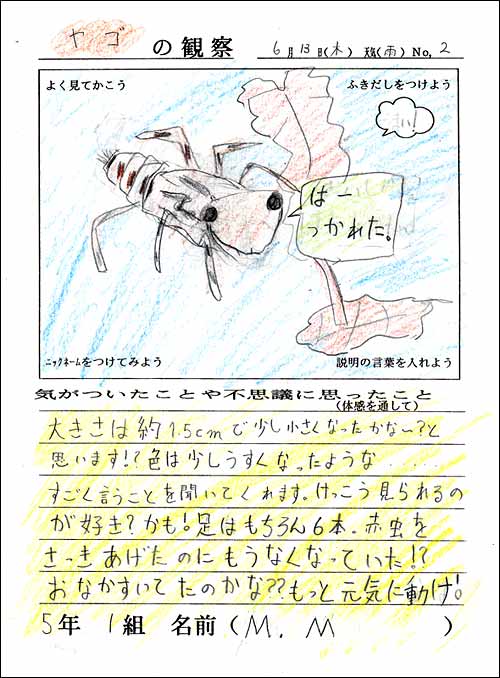 ヤゴの観察 6月13日(木) 天気(雨) No, 2
よく見てかこう ふきだしをつけよう
い!
はー
つかれた。
ニックネームをつけてみよう 説明の言葉を入れよう
気がついたことや不思議に思ったこと
(体感を通して)
大きさは約1.5cmで少し小さくなったかな〜?と
思います!?色は少しうすくなったような……
すごく言うことを聞いてくれます。けっこう見られるの
が好き?かも!足はもちろん6本。赤虫を
さっきあげたのにもうなくなっていた!?
おなかすいてたのかな??もっと元気に動け!
5年 1組 名前(M.M)